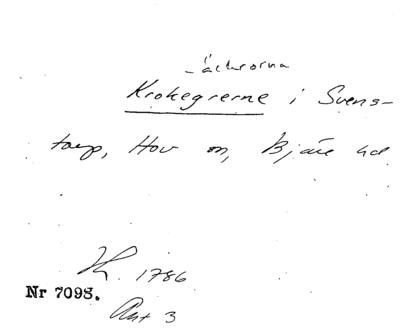 -åkrorna
Krokegrerne i Svens-
torp, Hov sn, Bjäre hd
1786
Nr 7098.
Akt 3